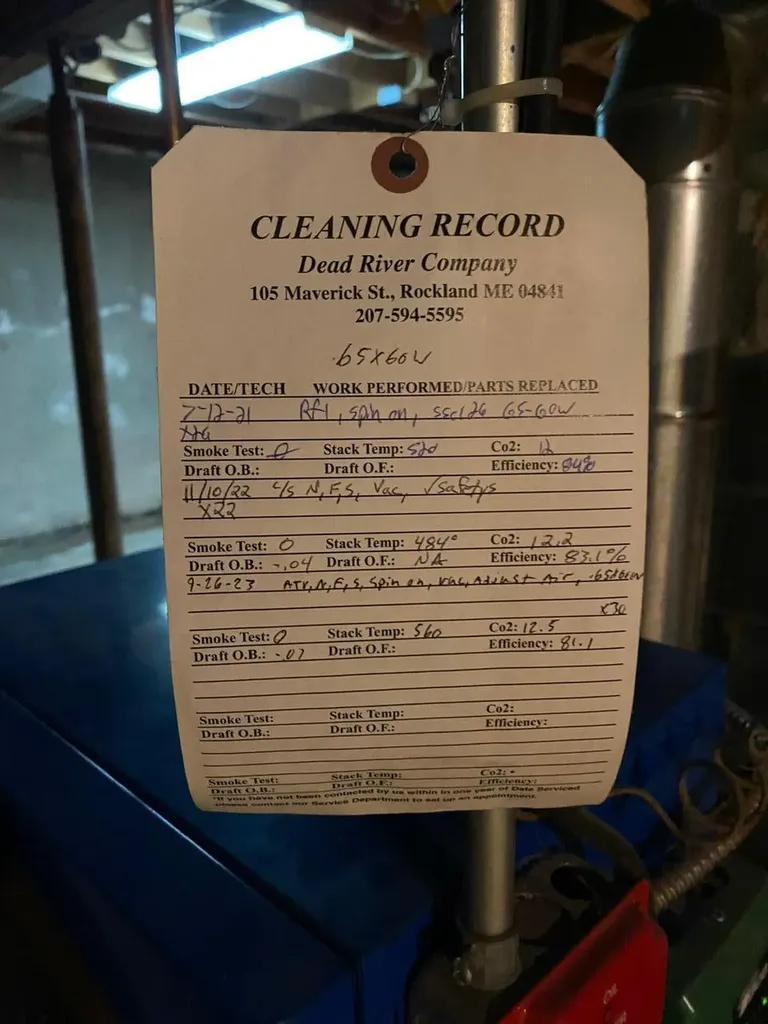 CLEANING RECORD
Dead River Company
105 Maverick St., Rockland ME 04841
207-594-5595
.65x60W
DATE/TECH WORK PERFORMED/PARTS REPLACED
7-12-21 Rf1, spin on, 65-60W
Smoke Test: 0 Stack Temp: 520 Co2: 12
Draft O.B.: Draft O.F.: Efficiency: 84%
11/10/22 c/s N,F,S, Vac, √Safetys
X22
Smoke Test: 0 Stack Temp: 484° Co2: 12.2
Draft O.B.: -.04 Draft O.F.: NA Efficiency: 83.1%
9-26-23 ATV,N,F,S, Spin on, Vac, Adjust Air, .65x60W
X30
Smoke Test: 0 Stack Temp: 560 Co2: 12.5
Draft O.B.: -.07 Draft O.F.: Efficiency: 81.1
Smoke Test: Stack Temp: Co2:
Draft O.B.: Draft O.F.: Efficiency:
Smoke Test: Stack Temp: Co2:
Draft O.B.: Draft O.F.: Efficiency:
"If you have not been contacted by us within in one year of Date Serviced
please contact our Service Department to set up an appointment.
OIL